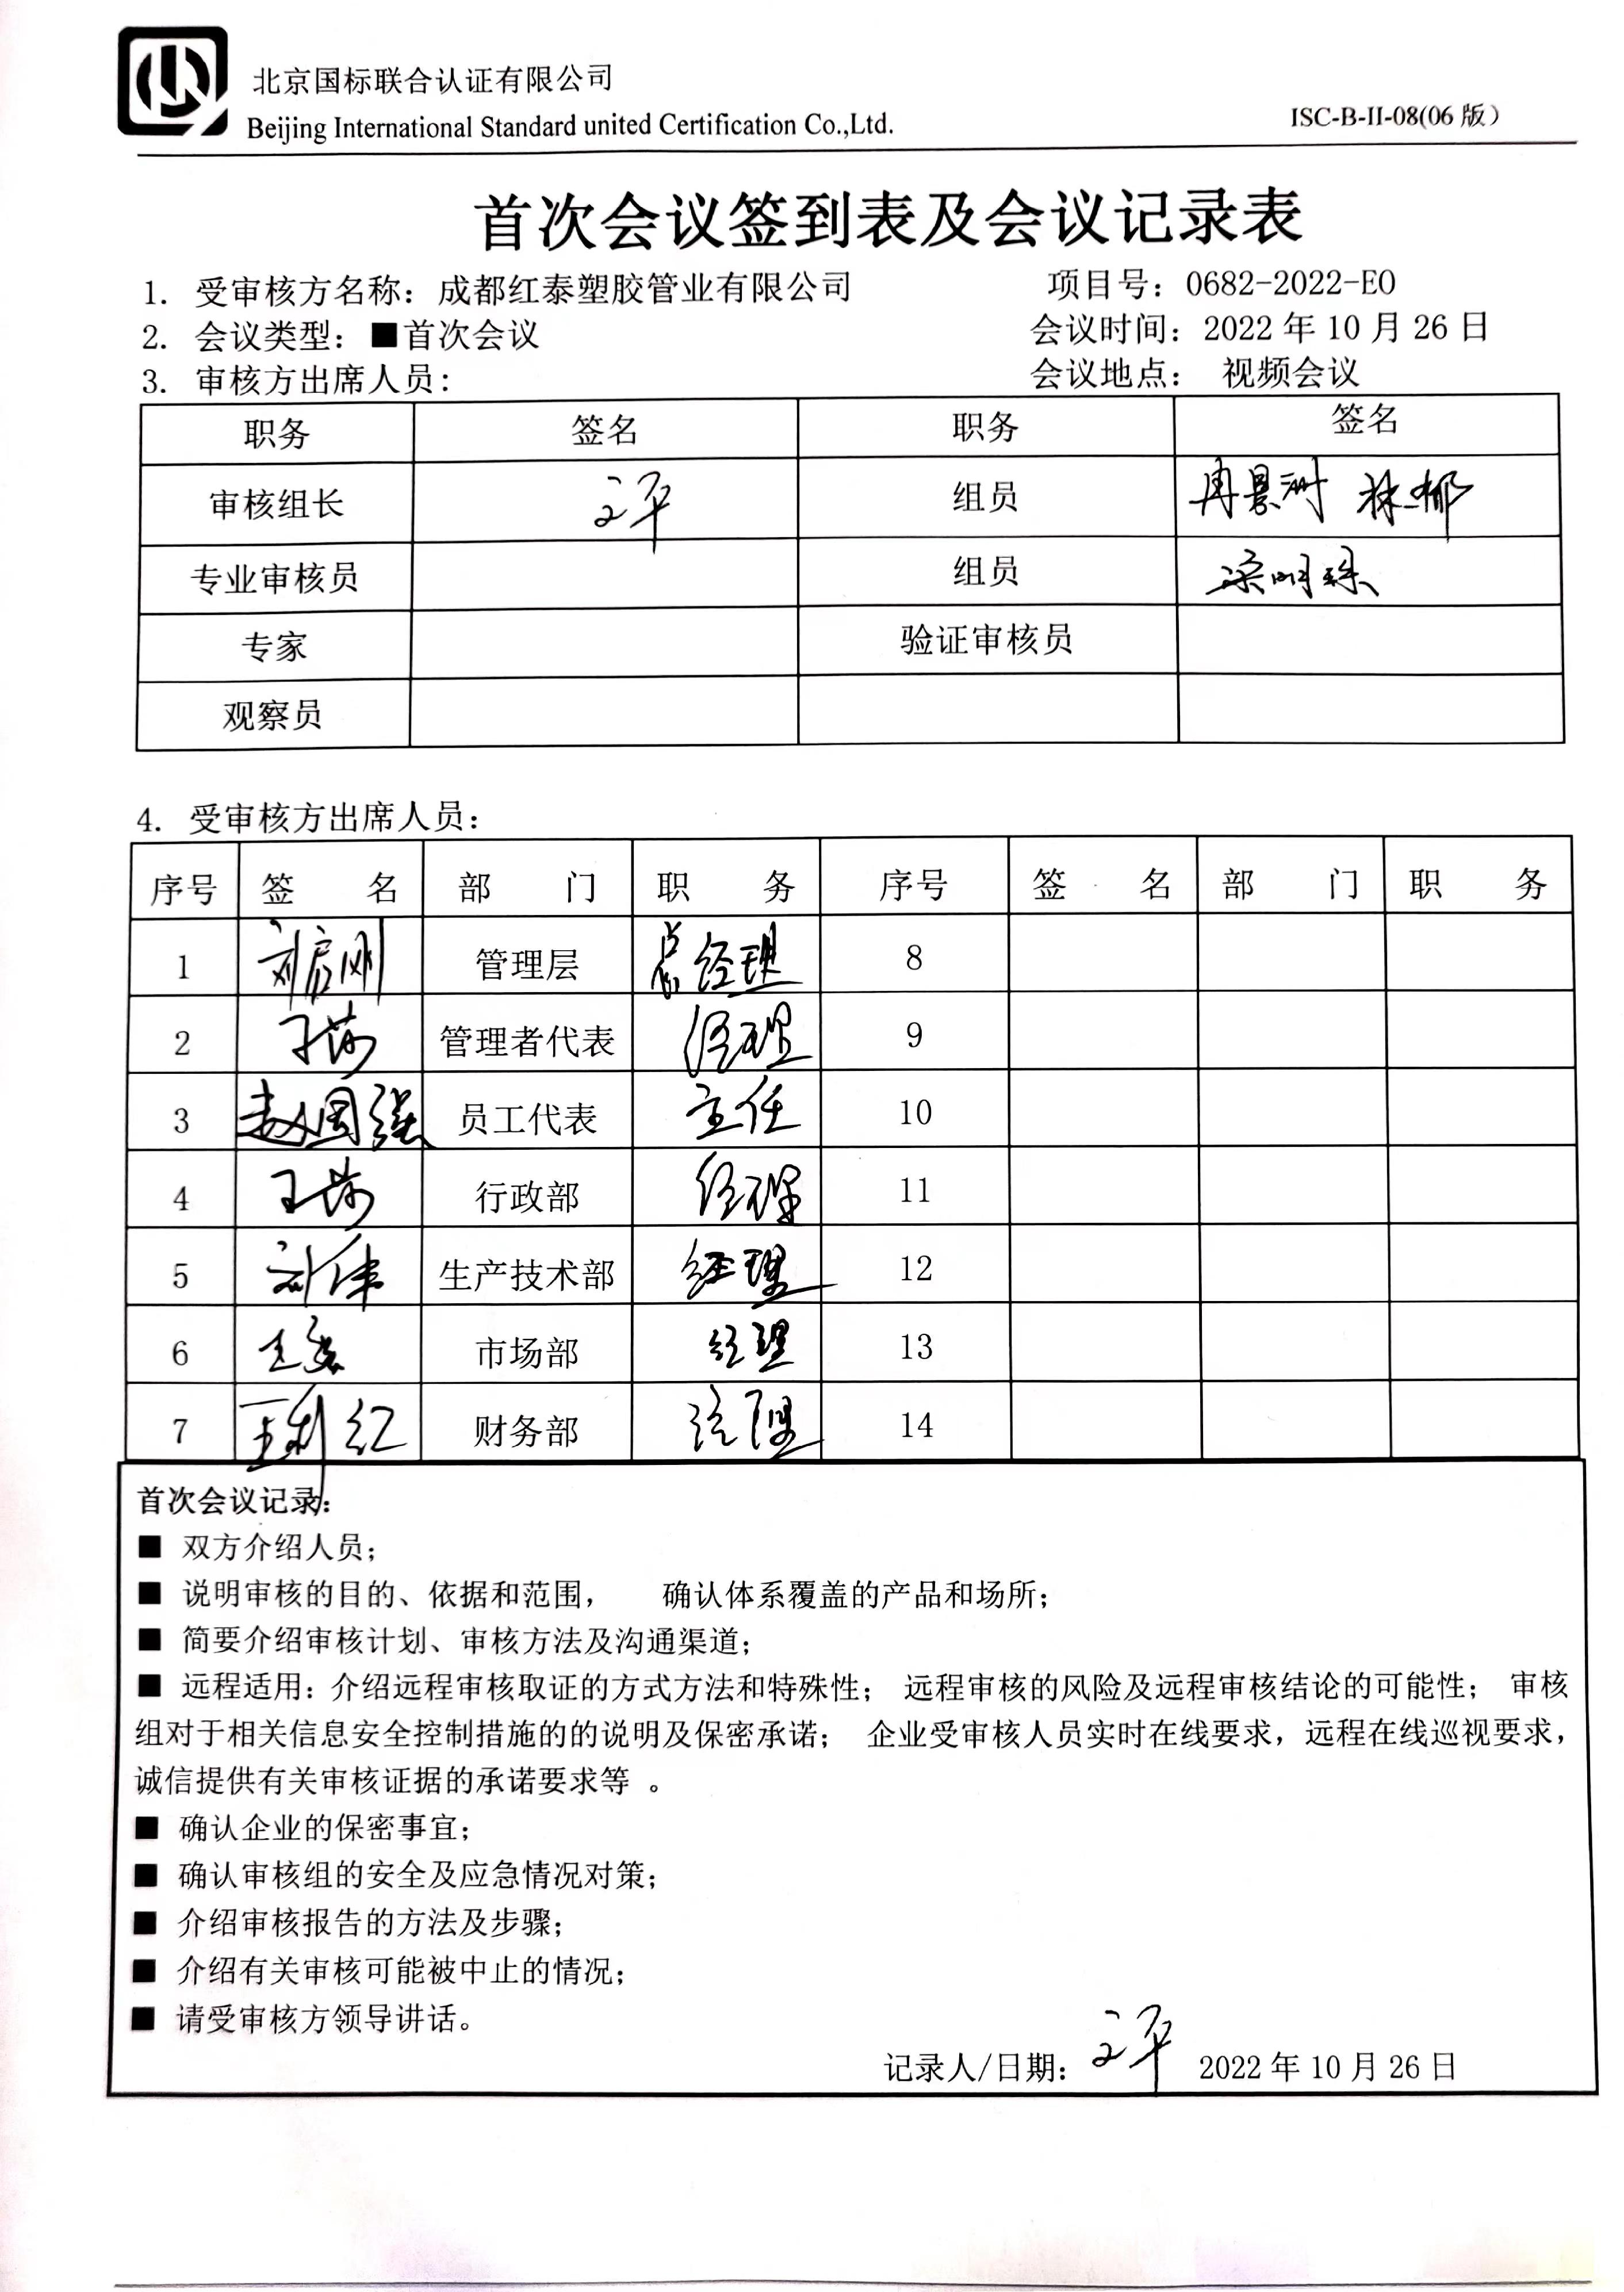 北京国标联合认证有限公司
Beijing International Standard united Certification Co.,Ltd.
ISC-B-II-08(06 版)
首次会议签到表及会议记录表
1. 受审核方名称：成都红泰塑胶管业有限公司 项目号：0682-2022-EO
2. 会议类型：■首次会议 会议时间：2022 年 10 月 26 日
3. 审核方出席人员： 会议地点： 视频会议
职务 签名 职务 签名
审核组长 文平 组员 冉景洲 林郁
专业审核员 组员 梁明珠
专家 验证审核员
观察员
4. 受审核方出席人员：
序号 签 名 部 门 职 务 序号 签 名 部 门 职 务
1 管理层 总经理 8
2 管理者代表 经理 9
3 赵国强 员工代表 主任 10
4 行政部 经理 11
5 刘伟 生产技术部 经理 12
6 市场部 经理 13
7 王利红 财务部 经理 14
首次会议记录：
■ 双方介绍人员；
■ 说明审核的目的、依据和范围， 确认体系覆盖的产品和场所；
■ 简要介绍审核计划、审核方法及沟通渠道；
■ 远程适用：介绍远程审核取证的方式方法和特殊性； 远程审核的风险及远程审核结论的可能性； 审核
组对于相关信息安全控制措施的的说明及保密承诺； 企业受审核人员实时在线要求，远程在线巡视要求，
诚信提供有关审核证据的承诺要求等 。
■ 确认企业的保密事宜；
■ 确认审核组的安全及应急情况对策；
■ 介绍审核报告的方法及步骤；
■ 介绍有关审核可能被中止的情况；
■ 请受审核方领导讲话。
记录人/日期： 文平 2022 年 10 月 26 日